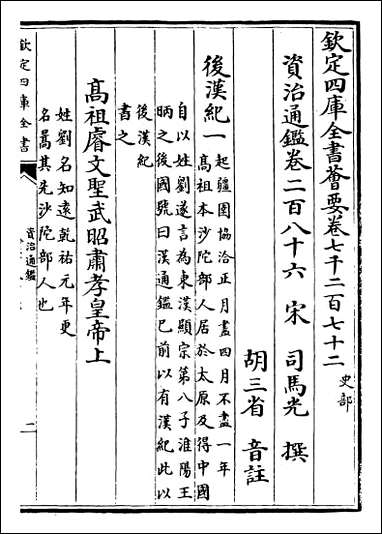 欽定四庫全書薈要卷七千二百七十二 史部
資治通鑑卷二百八十六 宋 司馬光 撰
胡三省 音註
後漢紀一
起疆圉協洽正月盡四月不盡一年
高祖本沙陀部人居於太原及得中國
自以姓劉遂言為東漢顯宗第八子淮陽王
昞之後國號曰漢通鑑巳前以有漢紀此以
後漢紀
書之
髙祖睿文聖武昭肅孝皇帝上
姓劉名知遠乾祐元年更
名暠其先沙陀部人也
欽定四庫全書
資治通鑑